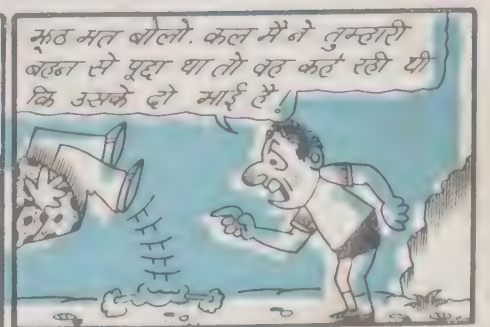 झूठ मत बोलो. कल मैं ने तुम्हारी
बहन से पूछा था तो वह कह रही थी
कि उसके दो भाई है!